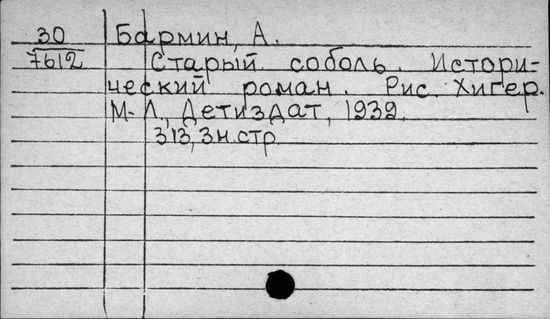 30 Бармин, А.
7612 Старый соболь. Истори-
ческий роман. Рис. Хигер.
М-Л., Детиздат, 1939.
313, 3 н. стр.